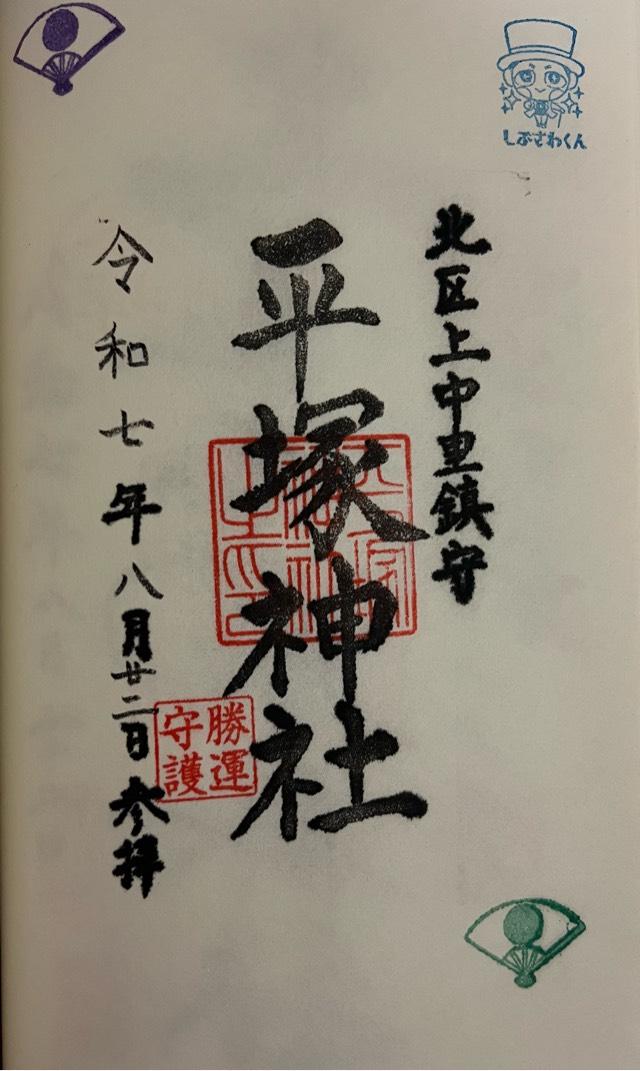 しぶさわくん
北区上中里鎮守
平塚神社
勝運
守護
令和七年八月廿二日参拝